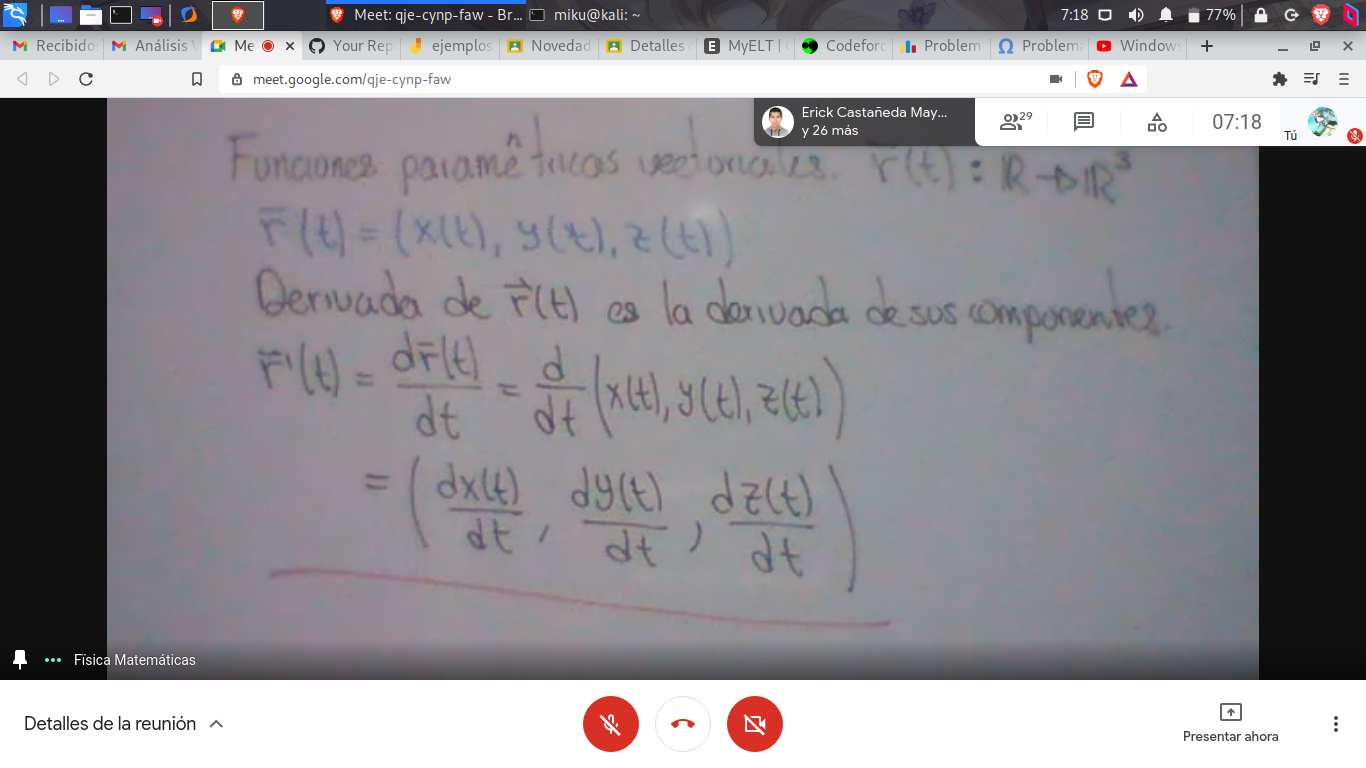 Meet: qje-cynp-faw - Br...
miku@kali: ~
7:18
77%
Recibidos
Análisis V
Me
Your Rep
ejemplos
Novedad
Detalles
MyELT |
Codeforc
Problem
Problema
Windows
meet.google.com/qje-cynp-faw
Erick Castañeda May...
y 26 más
29
07:18
Tú
Funciones paramêtricas vectoriales. r̄(t) : ℝ → ℝ³
r̄(t) = (x(t), y(t), z(t))
Derivada de r⃗(t) es la derivada de sus componentes.
r̄'(t) = dr̄(t)/dt = d/dt (x(t), y(t), z(t))
= (dx(t)/dt, dy(t)/dt, dz(t)/dt)
Fïsica Matemáticas
Detalles de la reunión
Presentar ahora